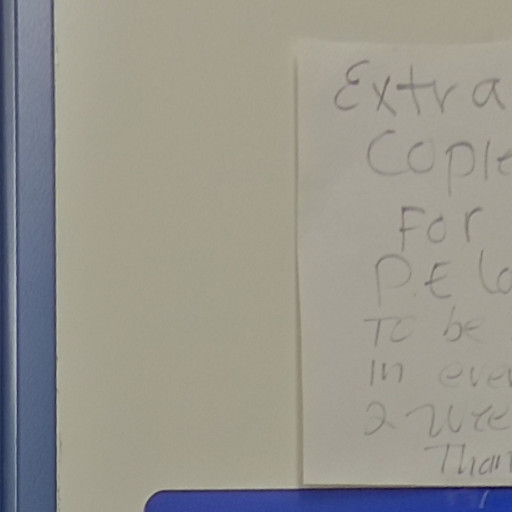 Extra
Copie
For
P.E lo
To be
In eve
2 wee
Than